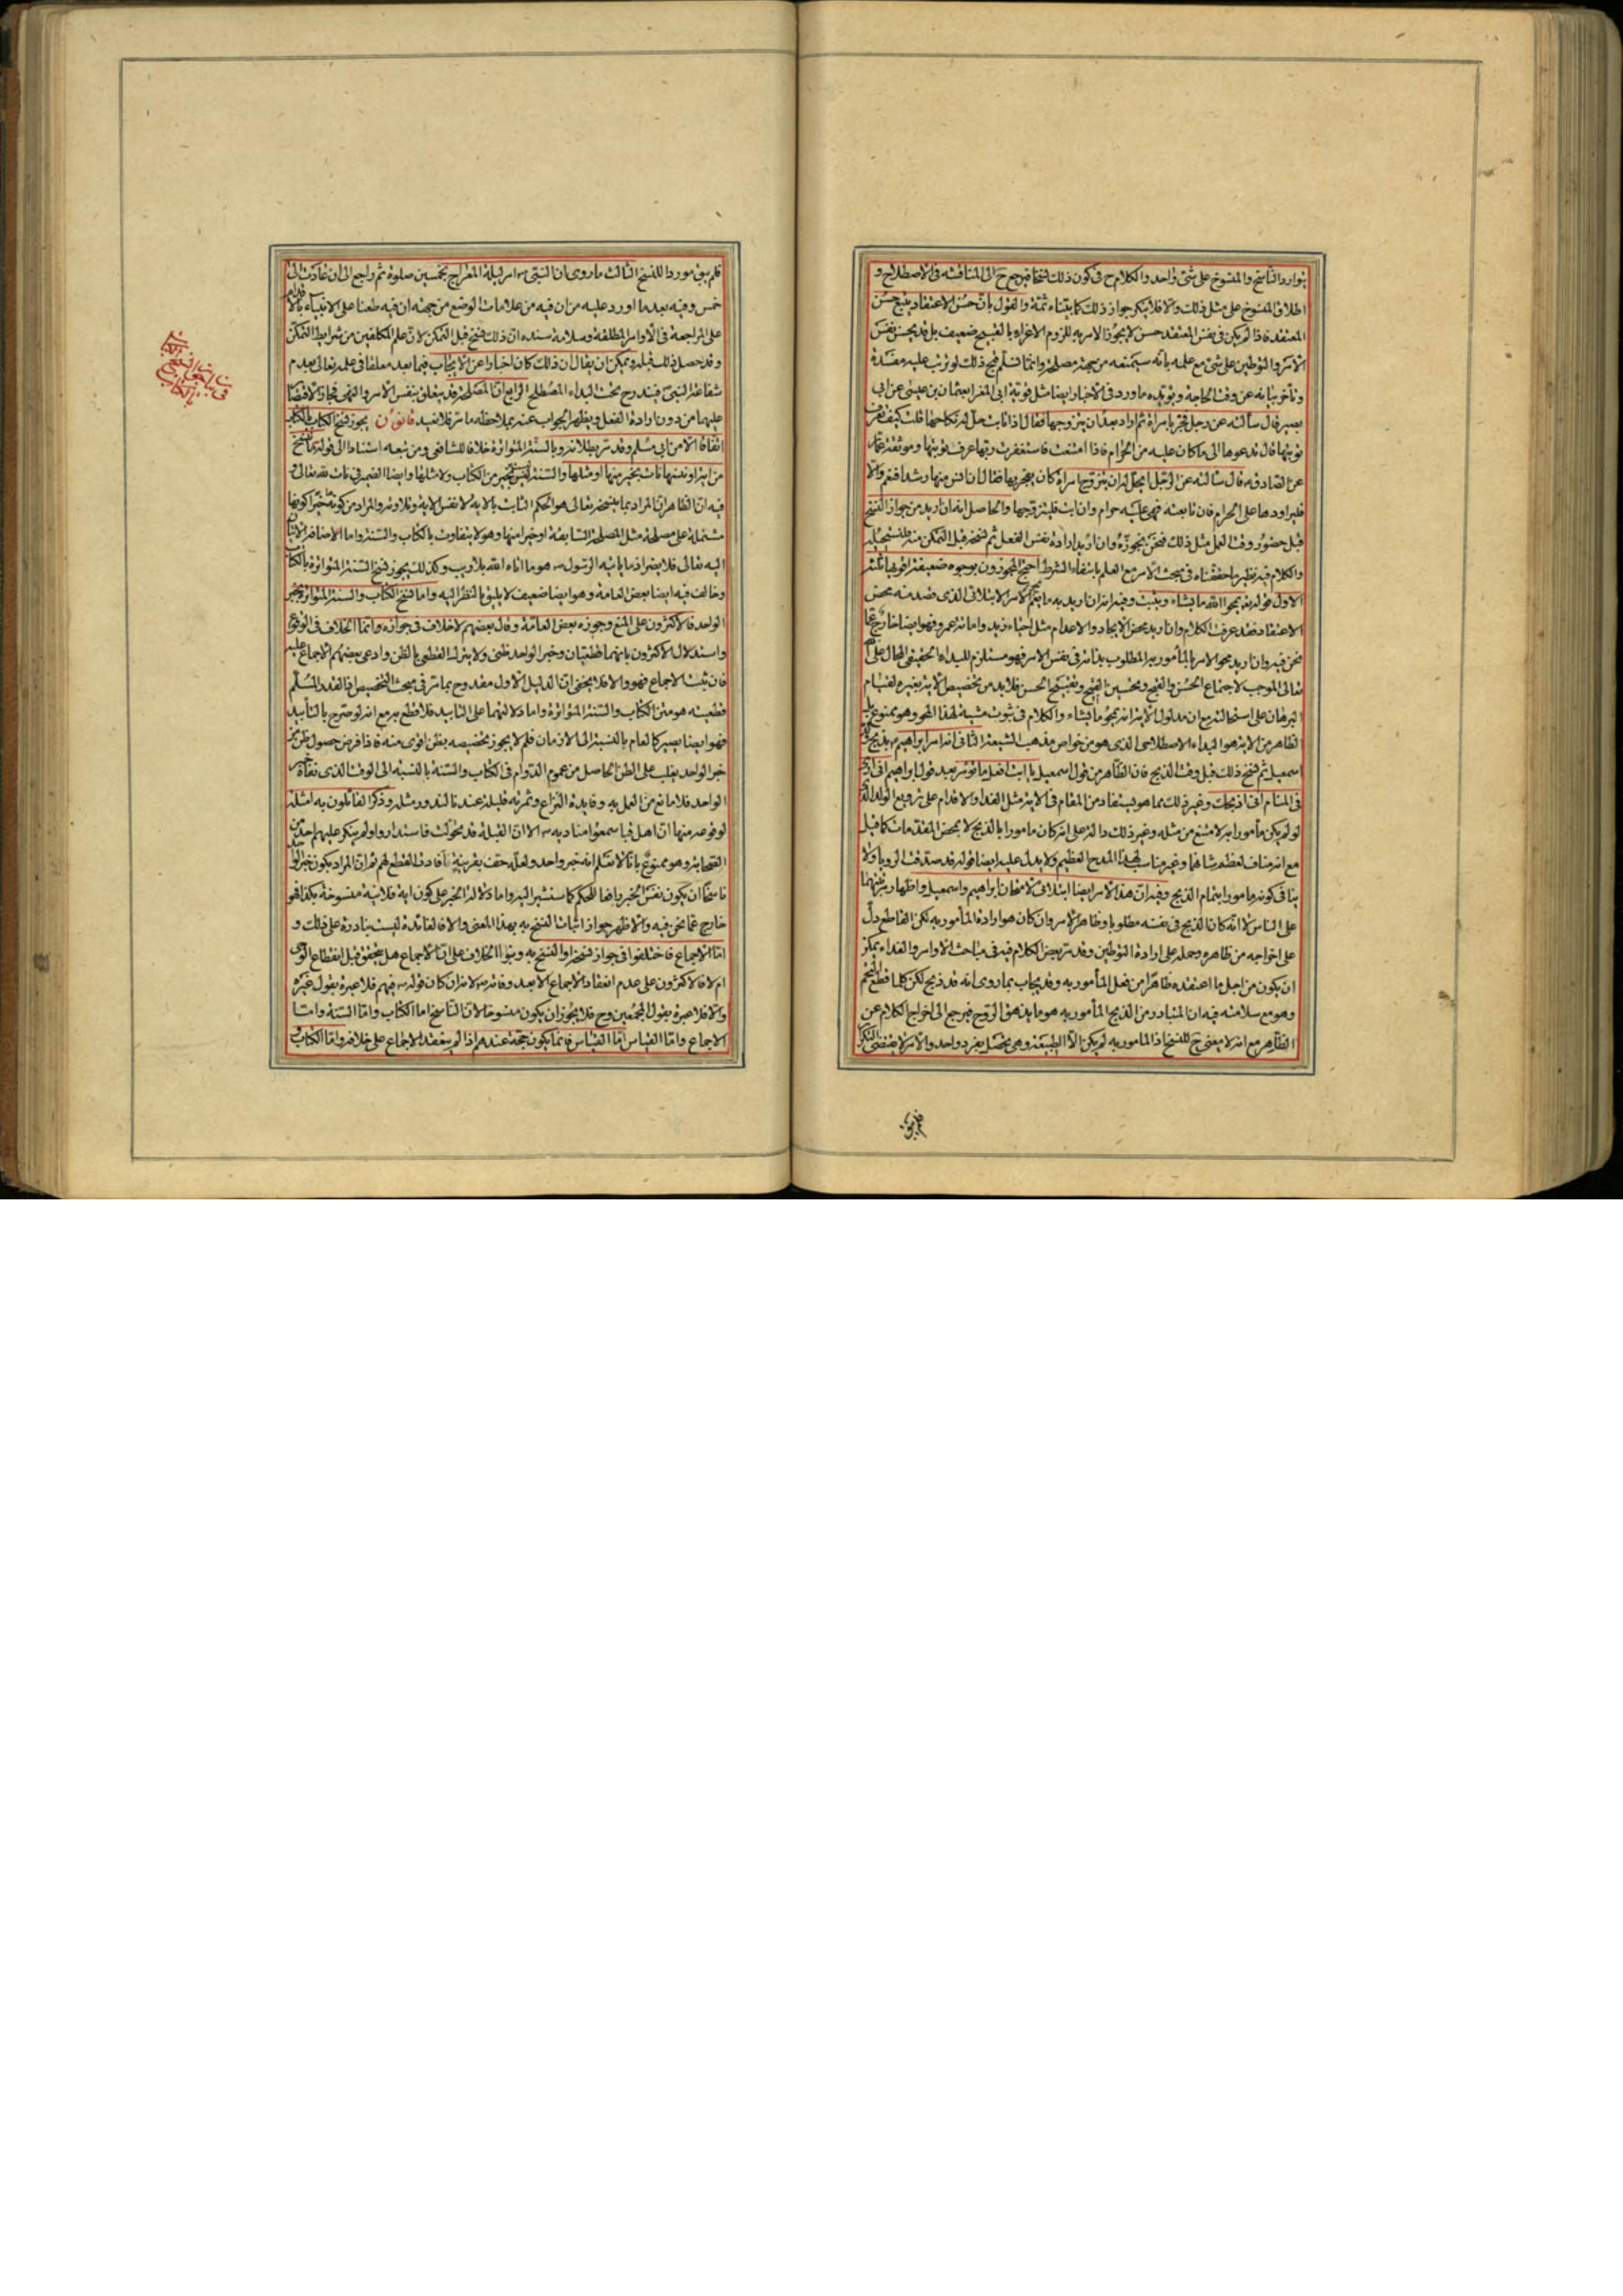 توارد الناسخ والمنسوخ على شئ واحد والكلام ح فى كون ذلك نسخا فيرجع ح الى المناقشة فى الاصطلاح و
اطلاق المنسوخ على مثل ذلك والا فلا ننكر جواز ذلك كما بيناه ثمة والقول بان حسن الاعتقاد يتبع حسن
المعتقد فاذا لم يكن فى نفس المعتقد حسن لا يجوز الامر به للزوم الاغراء بالقبيح ضعيف بل قد يحسن نفس
الامر والتوطين على شئ مع علمه بانه سيمنعه من جهة مصلحة وانما نسلم قبح ذلك لو ترتب عليه مفسدة
وتأخر بيانه عن وقت الحاجة ويؤيده ما ورد فى الاخبار ايضا مثل فوتية ابى المغرا عثمان بن عيسى عن ابى
بصير قال سألته عن رجل فجر بامرأة ثم اراد بعد ان يتزوجها فقال اذا تابت حل له نكاحها قلت كيف تعرف
توبتها قال يدعوها الى ما كان عليه من الحرام فاذا امتنعت فاستغفرت ربها عرف توبتها وموثقة عمار
عن الصادق قال سألته عن الرجل ايحل له ان يتزوج امرأة كان يفجر بها فقال ان انس منها رشدا فنعم والا
فليراودها على الحرام فان تابعته فهى عليه حرام وان ابت فليتزوجها والحاصل انه ان اريد من جواز النسخ
قبل حضور وقت العمل مثل ذلك فنحن نجوزه وان اريد ارادة نفس الفعل ثم نسخه قبل التمكن منه فنستحيله
والكلام فيه نظير ما حققناه فى مبحث الامر مع العلم بانتفاء الشرط احتج المجوزون بوجوه ضعيفة اقويها ثلثة
الاول قوله تع يمحوا الله ما يشاء ويثبت وفيه انه ان اريد به ما يعم الامر الابتلائى الذى قصد منه محض
الاعتقاد فقد عرفت الكلام وان اريد محض الايجاد والاعدام مثل احياء زيد واماتة عمرو فهو ايضا خارج عما
نحن فيه وان اريد محو الامر بالمأمور به المطلوب بذاته فى نفس الامر فهو مستلزم للبداء الحقيقى المحال على الله
تعالى الموجب لاجتماع الحسن والقبح وتحسين القبيح وتقبيح الحسن فلا بد من تخصيص الاية بغيره لقيام
البرهان على استحالته مع ان مدلول الاية انه يمحو ما يشاء والكلام فى ثبوت مشية لهذا المحو وهو ممنوع بل
الظاهر من الاية هو البداء الاصطلاحى الذى هو من خواص مذهب الشيعة الثانى انه امر ابراهيم بذبح ولده
اسمعيل ثم نسخ ذلك قبل وقت الذبح فان الظاهر من قول اسمعيل يا ابت افعل ما تؤمر بعد قول ابراهيم انى ارى
فى المنام انى اذبحك وغير ذلك مما هو يستفاد من المقام فى الاية مثل الفداء والاقدام على ترويع الولد الذى
لو لم يكن مأمورا به لامتنع من مثله وغير ذلك دالة على انه كان مامورا بالذبح لا بمحض المقدمات كما قيل
مع انه مناف لعظم شانهما وغير مناسب لهذا المدح العظيم ولا يدل عليه ايضا قوله قد صدقت الرؤيا ولا
ينافى كونه مامورا بتمام الذبح وفيه ان هذا الامر ايضا ابتلائى لامتحان ابراهيم واسمعيل واظهار رتبتهما
على الناس لا انه كان الذبح فى نفسه مطلوبا وظاهر الامر وان كان هو ارادة المأمور به لكن القاطع دل
على اخراجه من ظاهره وحمله على ارادة التوطين وقد مر بعض الكلام فيه فى مباحث الاوامر والفداء يمكن
ان يكون من اجل ما اعتقده ظاهرا من فعل المأمور به وقد يجاب بما روى انه قد ذبح لكن كلما قطع التحم
وهو مع سلامته فيه ان المتبادر من الذبح المأمور به هو ما يذهق الروح فيرجع الى اخراج الكلام عن
الظاهر مع انه لا معنى ح للنسخ اذ المامور به لم يكن الا الطبيعة وهى يحصل بفرد واحد والامر لا يقتضى التكرار
فلم يبق
فلم يبق مورد للنسخ الثالث ما روى ان النبى ص امر ليلة المعراج بخمسين صلوة ثم راجع الى ان عادت الى
خمس وفيه بعد ما اورد عليه من ان فيه من علامات الوضع من جهة ان فيه طعنا على الانبياء بالاقدام
على المراجعة فى الاوامر المطلقة وسلامة سنده ان ذلك نسخ قبل التمكن لان علم المكلفين من شرايط التمكن
وقد حصل ذلك قبله ويمكن ان يقال ان ذلك كان اخبارا عن الايجاب فيما بعد معلقا فى علمه تعالى بعدم
شفاعة النبى فيندرج تحت البداء المصطلح الرابع ان المصلحة قد يتعلق بنفس الامر والنهى فجاز الاقتصار
عليهما من دون ارادة الفعل ويظهر الجواب عنه بملاحظة ما مر فلا نعيد قانون يجوز نسخ الكتاب بالكتاب
اتفاقا الا من ابى مسلم وقد مر بطلانه وبالسنة المتواترة خلافا للشافعى ومن تبعه استنادا الى قوله تع ما ننسخ
من اية او ننسها نات بخير منها او مثلها والسنة ليس بخير من الكتاب ولا مثلها وايضا الضمير فى نات لله تعالى و
فيه ان الظاهر ان المراد بما ينسخه تعالى هو الحكم الثابت بالاية لا نفس الاية وتلاوته والمراد من كونه خيرا كونها
مشتملة على مصلحة مثل المصلحة السابقة او خير منها وهو لا يتفاوت بالكتاب والسنة واما الاضافة الاتيان
اليه تعالى فلا يضر اذ ما ياتى به الرسول ص هو ما اتاه الله بلا ريب وكذلك يجوز نسخ السنة المتواترة بالكتاب
وخالف فيه ايضا بعض العامة وهو ايضا ضعيف لا يليق بالنظر اليه واما نسخ الكتاب والسنة المتواترة بخبر
الواحد فالاكثرون على المنع وجوزه بعض العامة وقال بعضهم لا خلاف فى جوازه وانما الخلاف فى الوقوع
واستدلال الاكثرون بانهما قطعيان وخبر الواحد ظنى ولا يترك القطعى بالظن وادعى بعضهم الاجماع عليه
فان ثبت الاجماع فهو والا فلا يخفى ان الدليل الاول مقدوح بما مر فى مبحث التخصيص اذ القدر المسلم
قطعيته هو متن الكتاب والسنة المتواترة واما دلالتهما على التابيد فلا قطع به مع انه لو صرح بالتأبيد
فهو ايضا يصير كالعام بالنسبة الى الازمان فلم لا يجوز تخصيصه بظن اقوى منه فاذا فرض حصول ظن من
خبر الواحد يغلب على الظن الحاصل من عموم الدوام فى الكتاب والسنة بالنسبة الى الوقت الذى نفاه خبر
الواحد فلا مانع من العمل به وفايدة النزاع وثمرته قليلة عندنا لندور مثله وذكر القائلون به امثلة
لوقوعه منها ان اهل قبا سمعوا مناديه ص الا ان القبلة قد تحولت فاستداروا ولم ينكر عليهم احد من
الصحابة وهو ممنوع بانا لا نسلم انه خبر واحد ولعله حفت بقرينة افادت القطع لهم ثم ان المراد بكون خبر الواحد
ناسخا ان يكون نفس الخبر رافعا للحكم كما سنشير اليه واما دلالة الخبر على كون اية فلانية منسوخة بكذا فهو
خارج عما نحن فيه والاظهر جواز اثبات النسخ به بهذا المعنى والا فالفائدة ليست بنادرة على ذلك و
اما الاجماع فاختلفوا فى جواز نسخه او النسخ به وبنوا الخلاف على ان الاجماع هل يتحقق قبل انقطاع الوحى
ام لا فالاكثرون على عدم انعقاد الاجماع الا بعد وفاته ص لانه ان كان قوله ص فيهم فلا عبرة بقول غيره
والا فلا عبرة بقول المجمعين وح فلا يجوز ان يكون منسوخا لان الناسخ اما الكتاب واما السنة واما
الاجماع واما القياس اما القياس فانما يكون حجة عندهم اذا لم ينعقد الاجماع على خلافه واما الكتاب و